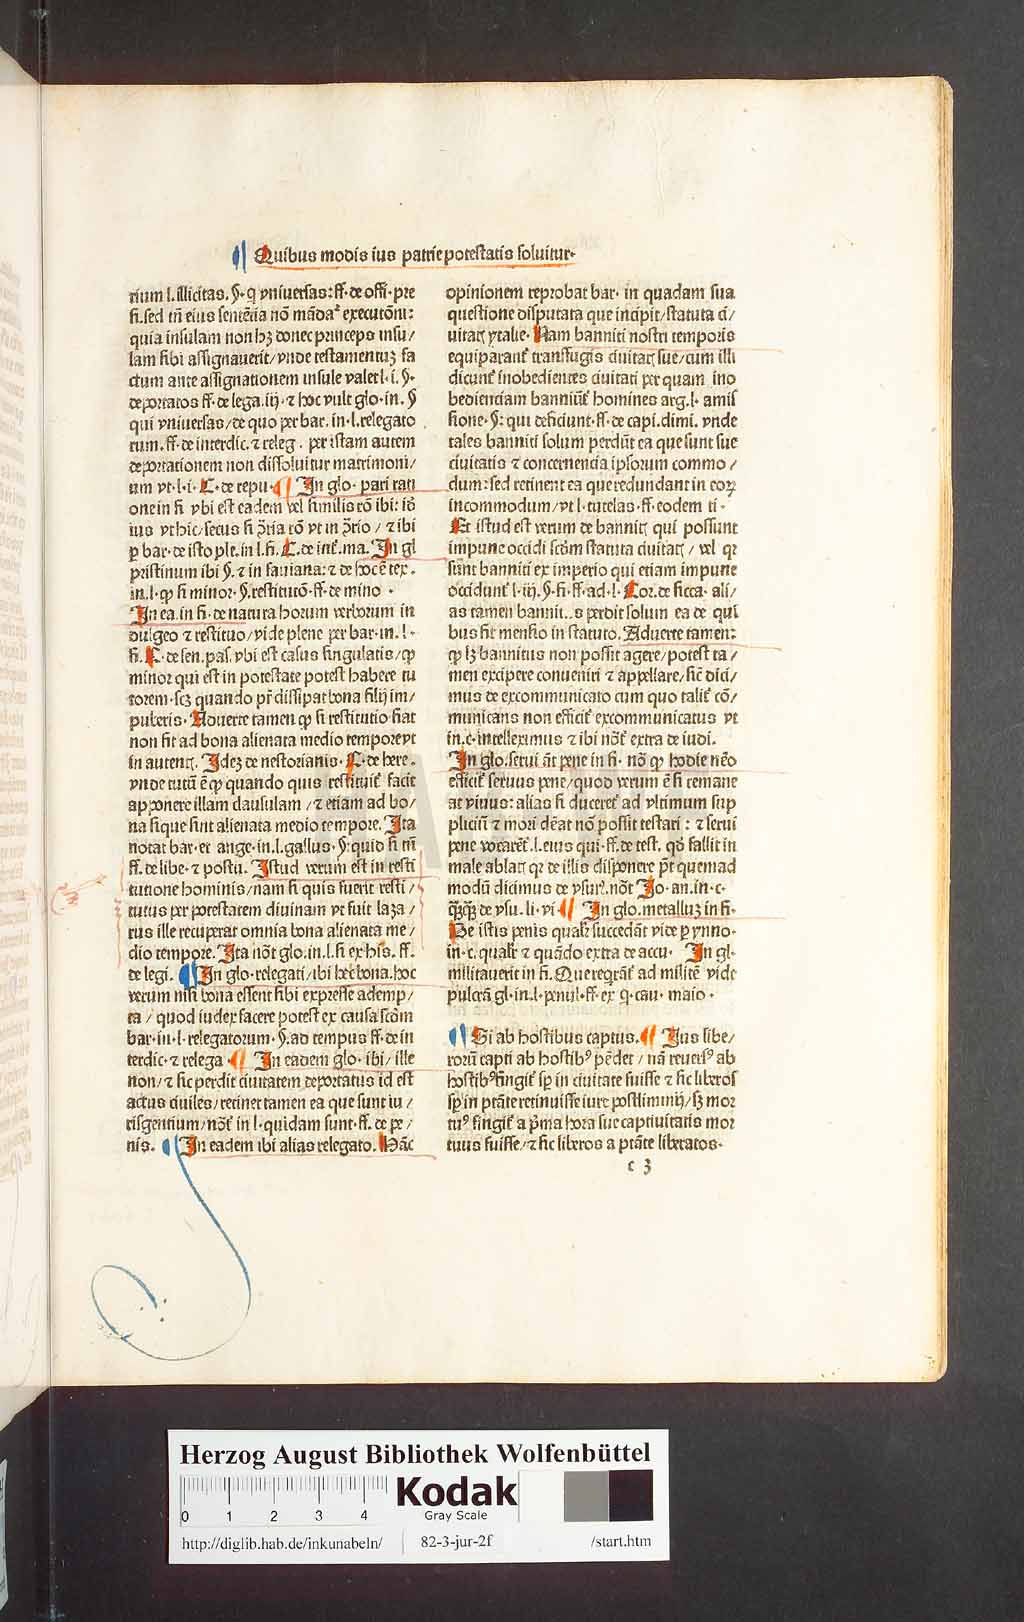 ¶ Quibus modis ius patrie potestatis soluitur·
rium l. illicitas. §· q vniuersas: ff· de offi· pre
si. sed tñ eius sentẽcia nõ mãdaᵗ executõni:
quia insulam non hȝ donec princeps insu/
lam sibi assignauerit/ vnde testamentuȝ fa
ctum ante assignationem insule valet l· i. §·
deportatos ff· de lega. iij· ⁊ hoc vult glo· in. §
qui vniuersas/ de quo per bar· in· l. relegato
rum. ff· de interdic. ⁊ releg · per istam autem
deportationem non dissoluitur matrimoni/
um vt· l· i· C· de repu· ¶ In glo· pari rati
one in fi vbi est eadem vel similis rõ ibi: iõ
ius vt hic/ secus si ɔ̃ria rõ vt in ɔ̃rio/ ⁊ ibi
ꝑ bar· de isto ple. in l. fi. C. de int̃. ma. In gl
pristinum ibi §. ⁊ in sauiana: ⁊ de hoc ẽ tex.
in. l· ꝙ si minor· §. restitutõ· ff· de mino ·
In ea. in fi· de natura horum verborum in
dulgeo ⁊ restituo/ vide plene per bar· in. l·
fi. C· de sen. pas. vbi est casus singulatis/ ꝙ
minor qui est in potestate potest habere tu
torem· scȝ quando pr̃ dissipat bona filij im/
puberis· Aduerte tamen ꝙ si restitutio fiat
non fit ad bona alienata medio tempore vt
in autenṫ. Idez de nestorianis· C· de here·
vnde tutũ ẽ ꝙ quando quis restituit̃ facit
apponere illam clausulam / ⁊ etiam ad bo/
na si que sint alienata medio tempore. Ita
notat bar· et ange· in. l. gallus· §· quid si tm̃
ff. de libe· ⁊ postu. Istud verum est in resti
tutione hominis/ nam si quis fuerit resti/
tutus per potestatem diuinam vt fuit laza/
rus ille recuperat omnia bona alienata me/
dio tempore. Ita nõt glo. in. l. si ex his. ff·
de legi. ¶ In glo· relegati/ ibi hec bona. hoc
verum nisi bona essent sibi expresse ademp/
ta / quod iudex facere potest ex causa scõm
bar· in· l· relegatorum· §. ad tempus ff· de in
terdic· ⁊ relega ¶ In eadem glo· ibi/ ille
non/ ⁊ sic perdit ciuitatem deportatus id est
actus ciuiles/ retinet tamen ea que sunt iu/
risgentium/ nõt̃ in l· quidam sunt· ff. de pe/
nis. ¶ In eadem ibi alias relegato. Hãc
opinionem reprobat bar· in quadam sua
questione disputata que incipit/ statuta ci/
uitatꝝ ytalie· Nam banniti nostri temporis
equiparant̃ transfugis ciuitatꝝ sue/ cum illi
dicunt̃ inobedientes ciuitati per quam ino
bedienciam banniũt̃ homines arg. l· amis
sione· §: qui deficiunt· ff· de capi. dimi. vnde
tales banniti solum perdũt ea que sunt sue
ciuitatis ⁊ concernencia ipsorum commo/
dum: sed retinent ea que redundant in eoꝝ
incommodum/ vt l· tutelas· ff· eodem ti·
Et istud est verum de bannitꝭ qui possunt
impune occidi scõm statuta ciuitatꝝ/ vel qꝛ
sũnt banniti ex imperio qui etiam impune
occidunt̃ l· iij· §· fi· ff· ad· l· Cor. de sicca· ali/
as tamen bannit..s perdit solum ea de qui
bus fit mensio in statuto. Aduerte tamen:
ꝙ lȝ bannitus non possit agere/ potest ta/
men excipere conueniri ⁊ appellare/ sic̃ dici/
mus de excommunicato cum quo talit̃ cõ/
municans non efficit̃ excommunicatus vt
in. c· intelleximus ⁊ ibi nõt̃ extra de iudi.
In glo. serui añt pene in fi· nõ ꝙ hodie nẽo
efficit̃ seruus pene/ quod verum ẽ si remane
at viuus: alias si duceret̃ ad vltimum sup
pliciũ ⁊ mori deãt nõ possit testari : ⁊ serui
pene vocaret̃. l. eius qui· ff. de test. qõ fallit in
male ablatꝭ qꝛ de illis disponere p̃t quemad
modũ dicimus de vsurꝭ. nõt Io· an. in· c·
q̃q̃ de vsu. li· vi· ¶ In glo. metalluȝ in fi·
De istis penis qualꝭ succedãt vide ꝑ ynno·
in· c. qualꝭ ⁊ quãdo extra de accu· In gl·
militauerit in fi. Que reqrãt̃ ad militẽ vide
pulcrã gl· in. l· penul· ff· ex q· cau· maio·
¶ Si ab hostibus captus. ¶ Ius libe/
rorũ capti ab hostibꝰ pẽdet/ nã reuersꝰ ab
hostibꝰ fingit̃ sp̃ in ciuitate fuisse ⁊ sic liberos
sp̃ in ptãte retinuisse iure postliminij/ sȝ mor
tuꝰ fingit̃ a p̃ma hora sue captiuitatis mor
tuus fuisse/ ⁊ sic liberos a ptãte liberatos·
c 3
HAB
Herzog August Bibliothek Wolfenbüttel
0 1 2 3 4
Kodak
Gray Scale
http://diglib.hab.de/inkunabeln/ 82-3-jur-2f /start.htm